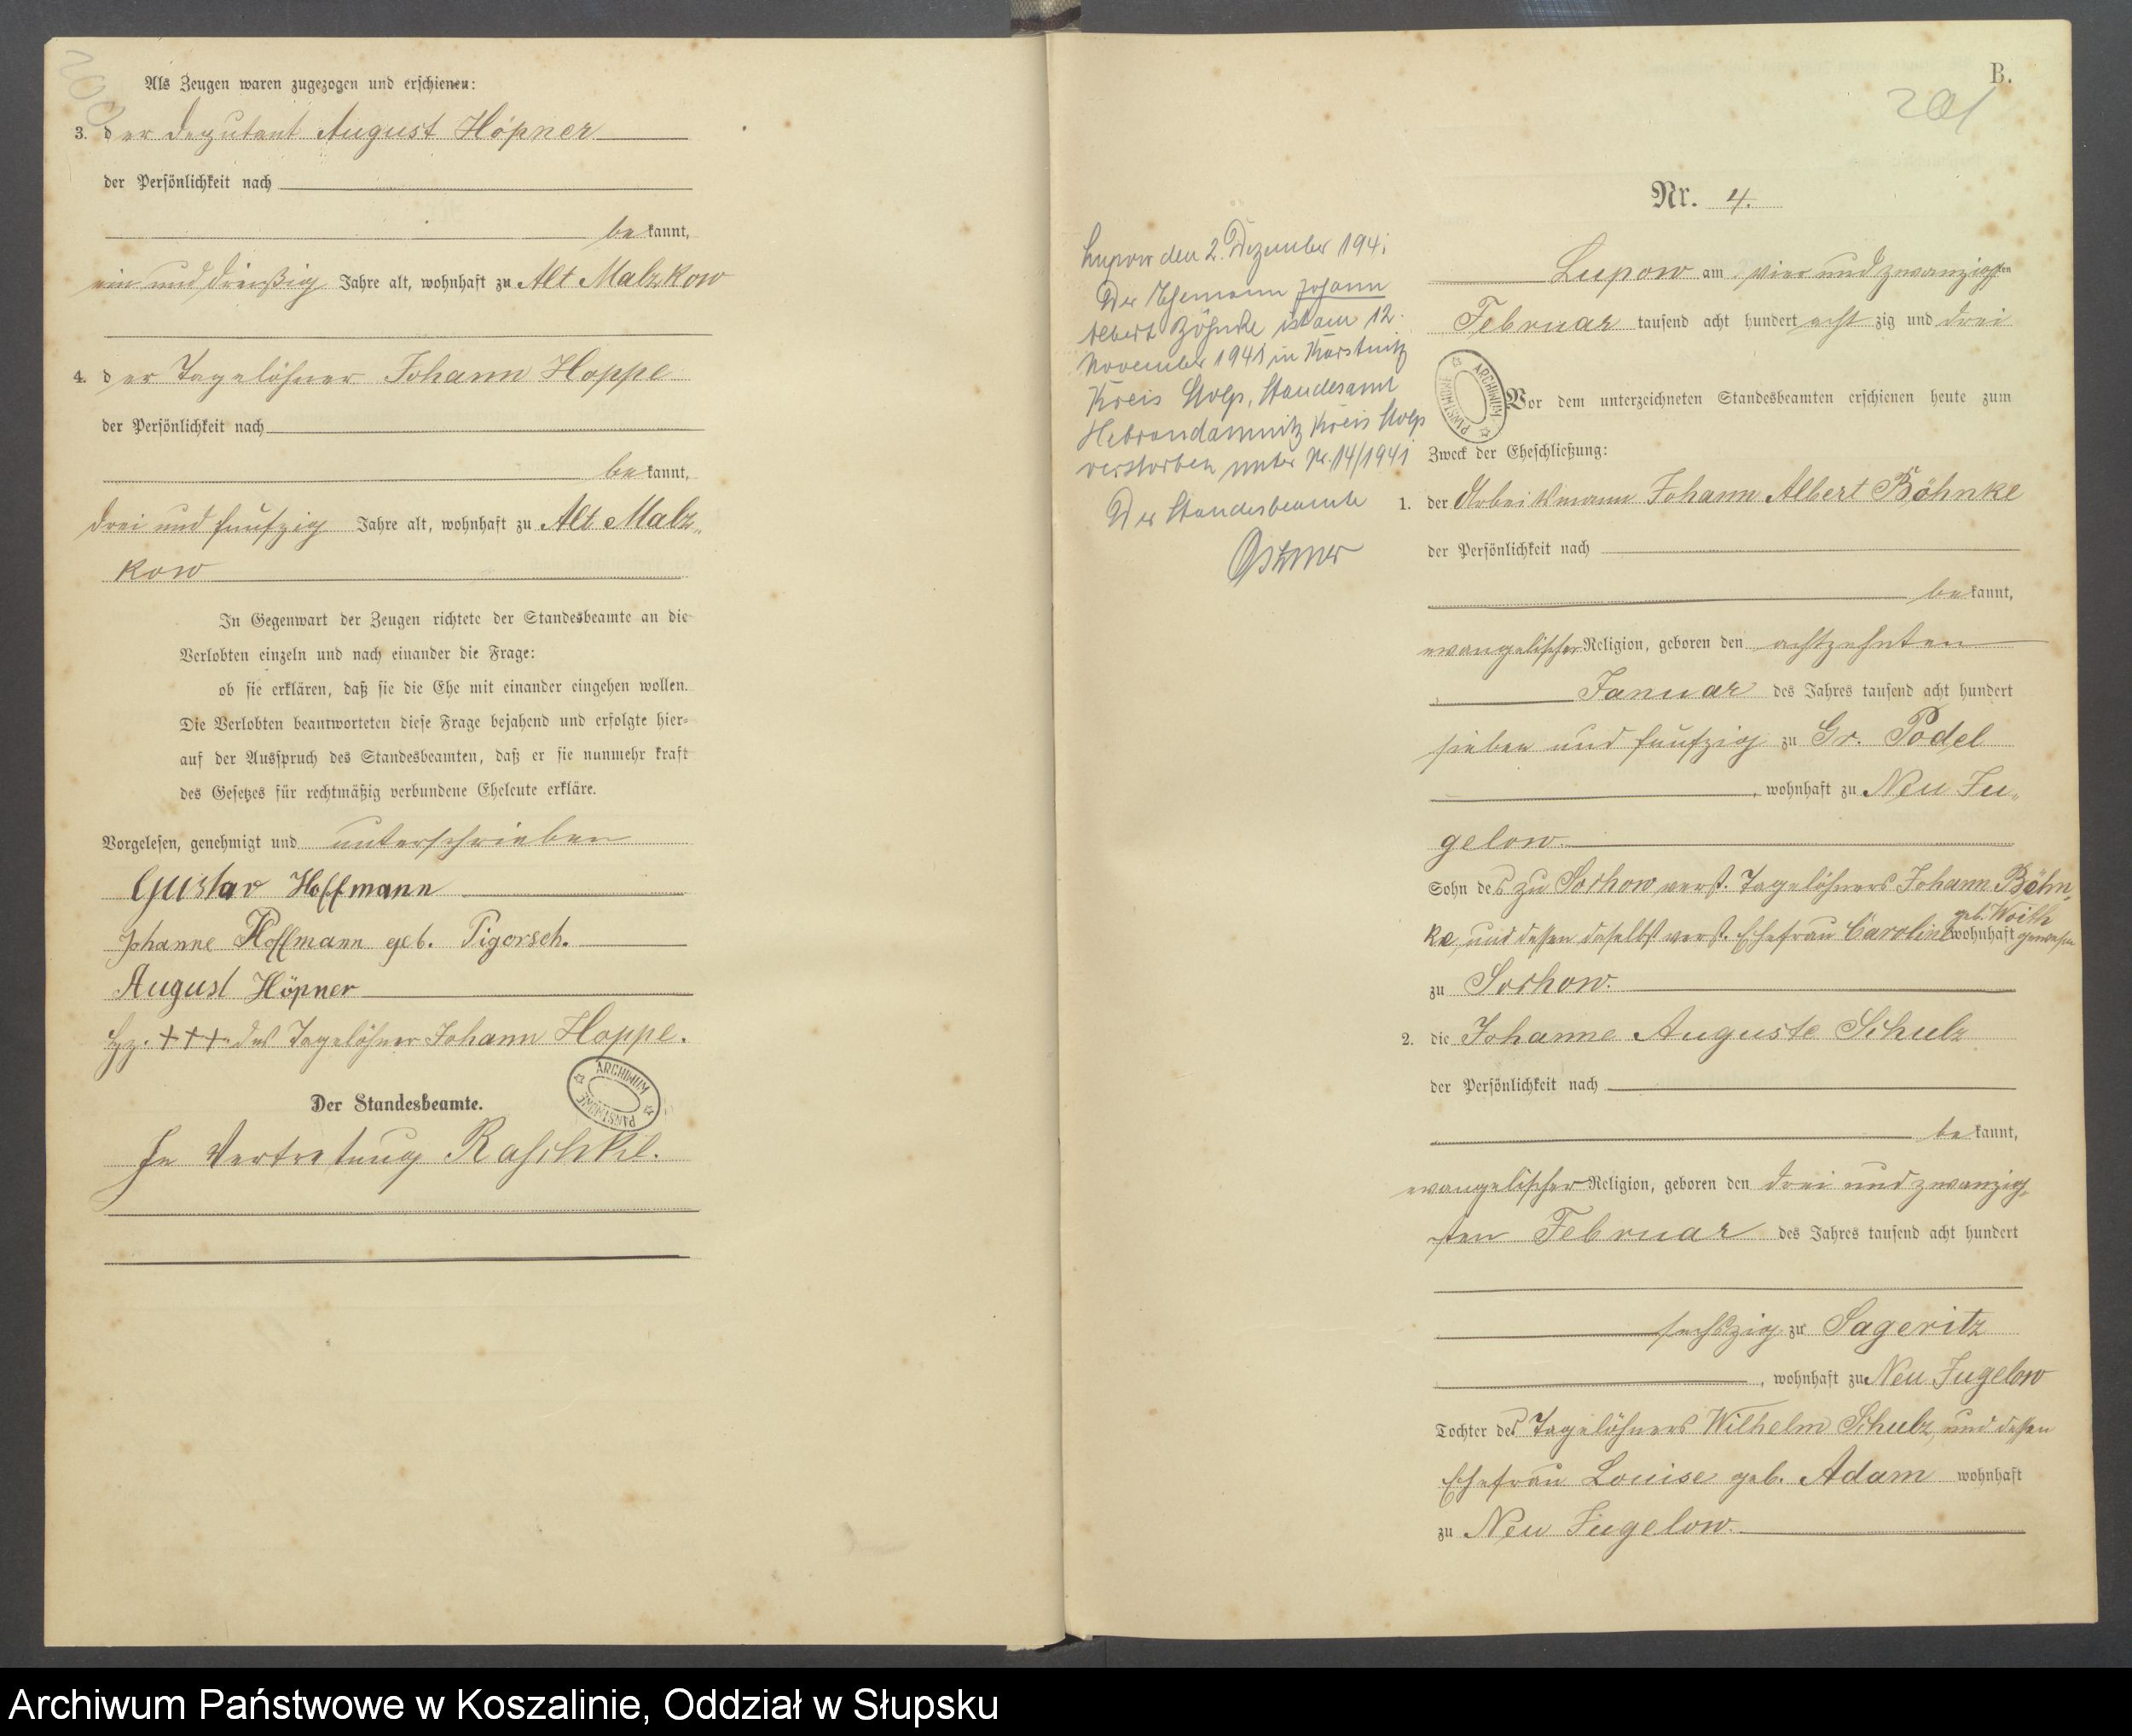 200
Als Zeugen waren zugezogen und erschienen:
3. der Deputant August Höpner
der Persönlichkeit nach
bekannt,
ein und dreißig Jahre alt, wohnhaft zu Alt Malzkow
4. der Tagelöhner Johann Hoppe
der Persönlichkeit nach
bekannt,
drei und funfzig Jahre alt, wohnhaft zu Alt Malz„
kow
In Gegenwart der Zeugen richtete der Standesbeamte an die
Verlobten einzeln und nach einander die Frage:
ob sie erklären, daß sie die Ehe mit einander eingehen wollen.
Die Verlobten beantworteten diese Frage bejahend und erfolgte hier-
auf der Ausspruch des Standesbeamten, daß er sie nunmehr kraft
des Gesetzes für rechtmäßig verbundene Eheleute erkläre.
Vorgelesen, genehmigt und unterschrieben
Gustav Hoffmann
Johanne Hoffmann geb. Pigorsch.
August Höpner
Hz. +++ des Tagelöhner Johann Hoppe.
Der Standesbeamte.
ARCHIWUM PAŃSTWOWE
In Vertretung Raschke.
B.
201
Nr. 4.
Lupow am vier und zwanzigsten
Februar tausend acht hundert acht zig und drei
ARCHIWUM PAŃSTWOWE
Vor dem unterzeichneten Standesbeamten erschienen heute zum
Zweck der Eheschließung:
1. der Arbeitsmann Johann Albert Böhnke
der Persönlichkeit nach
bekannt,
evangelischer Religion, geboren den achtzehnten
Januar des Jahres tausend acht hundert
sieben und funfzig zu Gr. Podel
, wohnhaft zu Neu Ju„
gelow.
Sohn des zu Sochow verst. Tagelöhners Johann Böhn„
ke, und dessen daselbst verst. Ehefrau Caroline geb. Woith wohnhaft gewesen
zu Sochow.
2. die Johanne Auguste Schulz
der Persönlichkeit nach
bekannt,
evangelischer Religion, geboren den drei und zwanzig„
sten Februar des Jahres tausend acht hundert
sechszig zu Sageritz
, wohnhaft zu Neu Jugelow
Tochter des Tagelöhners Wilhelm Schulz, und dessen
Ehefrau Louise geb. Adam wohnhaft
zu Neu Jugelow.
Lupow den 2. Dezember 1941
Der Ehemann Johann
Albert Böhnke ist am 12.
November 1941 in Karstnitz
Kreis Stolp, Standesamt
Hebrondamnitz Kreis Stolp
verstorben unter Nr. 14/1941
Der Standesbeamte
Archiwum Państwowe w Koszalinie, Oddział w Słupsku